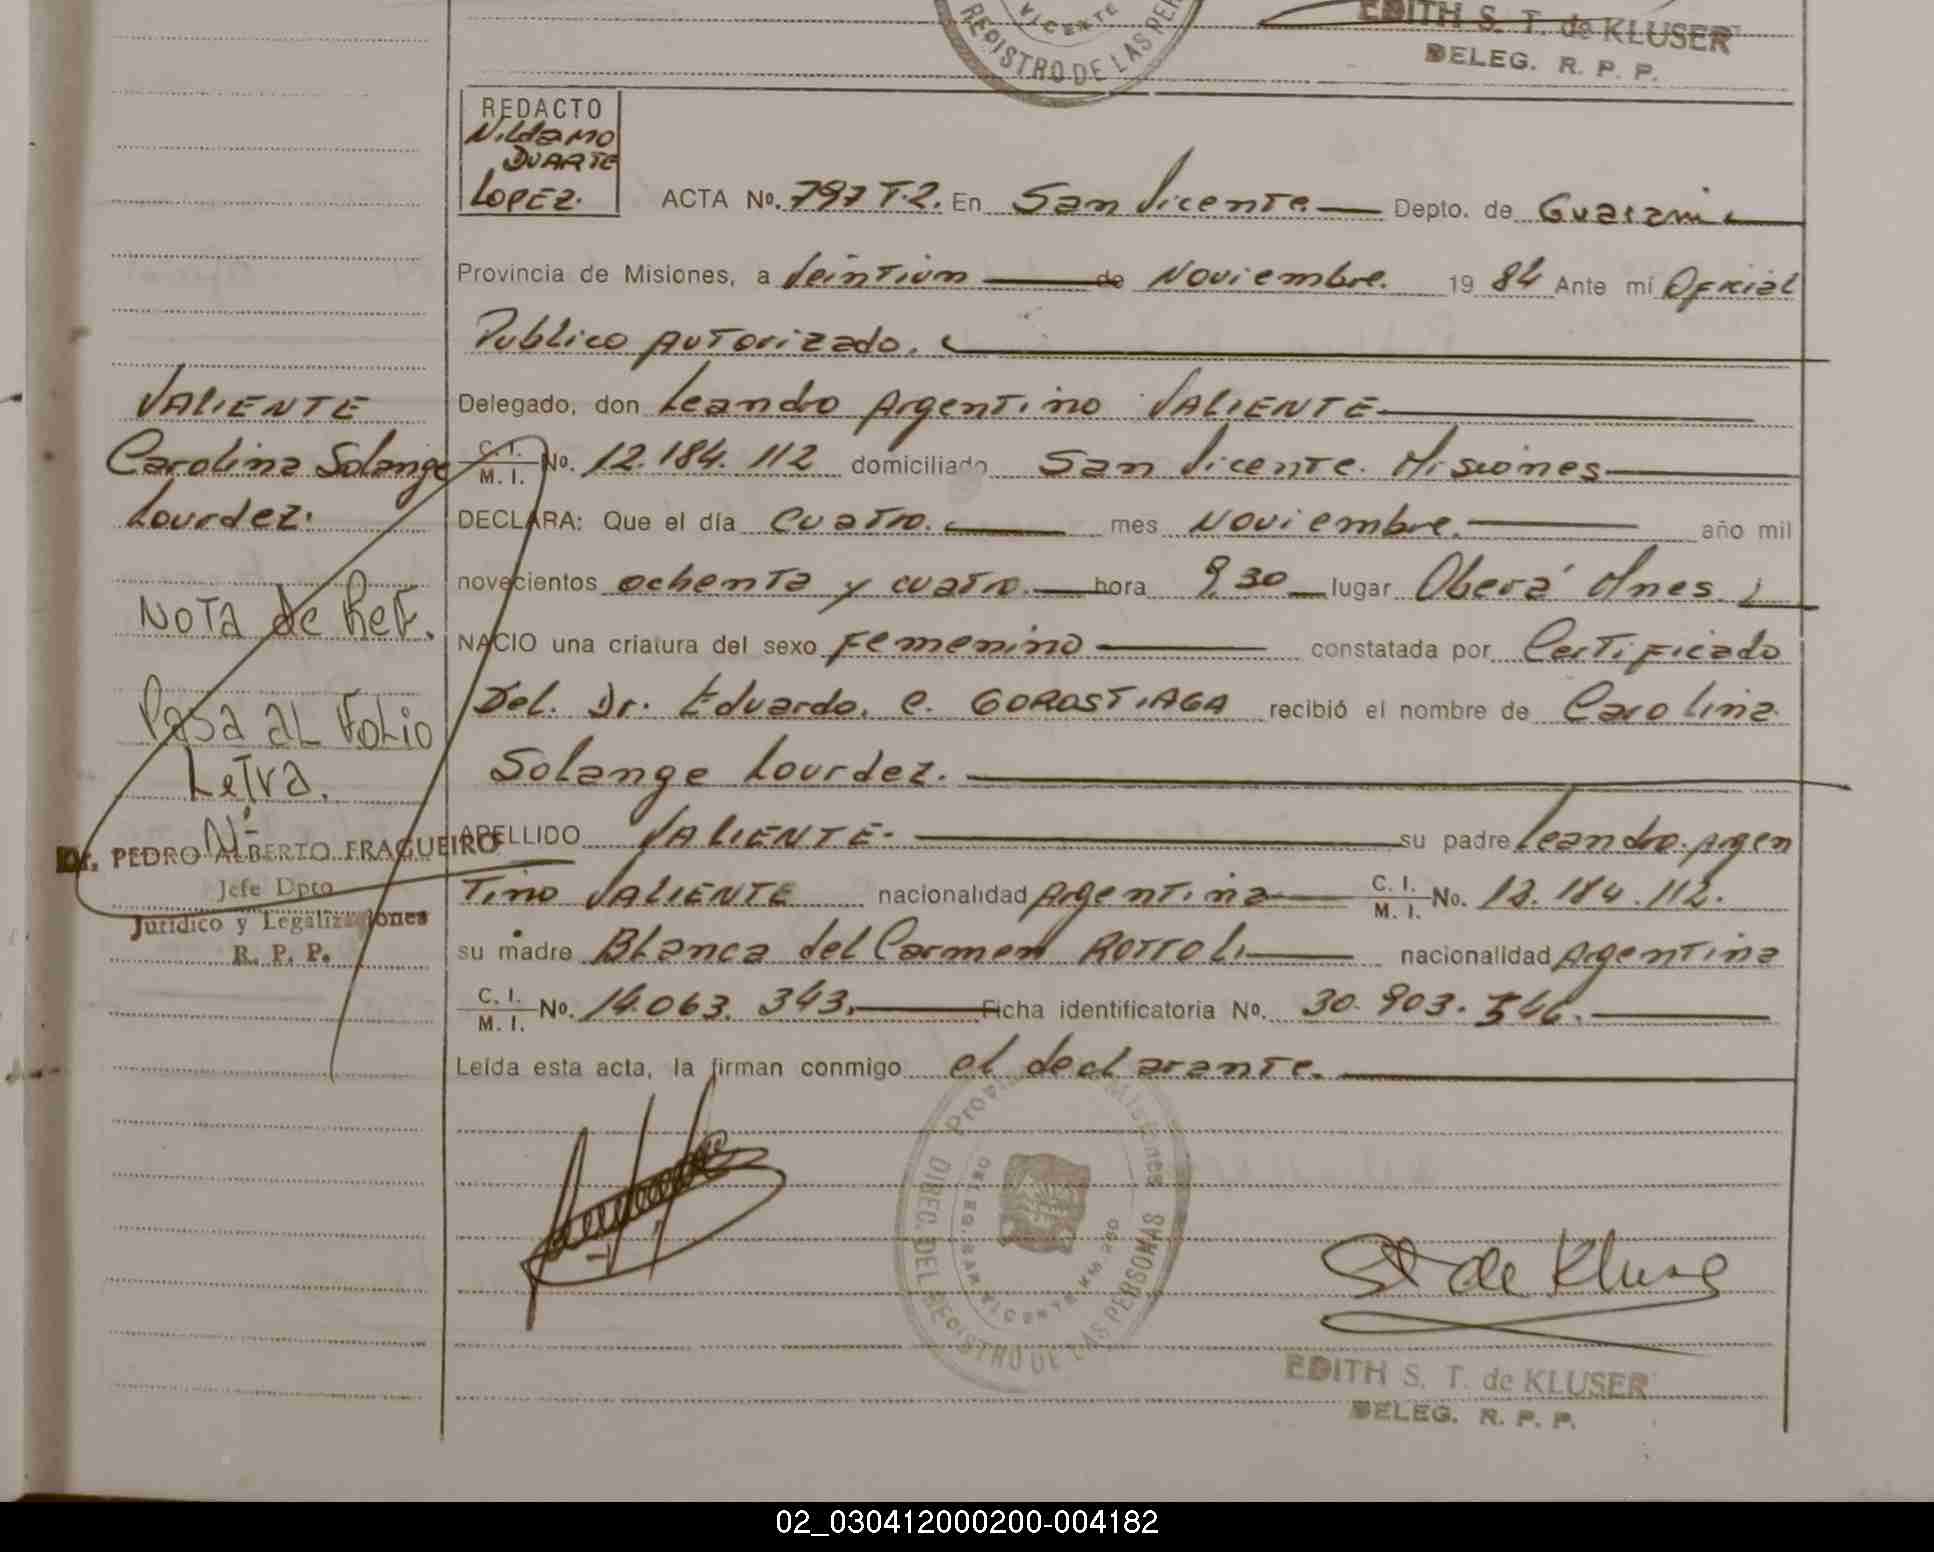 VICENTE
REGISTRO DE LAS PER
EDITH S. T. de KLUSER
DELEG. R. P. P.
REDACTO
Nildamo
DUARTE
LOPEZ.
ACTA No. 797 T.2. En San Vicente Depto. de Guarani
Provincia de Misiones, a Veintiun de Noviembre. 19 84 Ante mí Oficial
Publico Autorizado.
Delegado, don Leandro Argentino VALIENTE
C. I. / M. I. No. 12.184.112 domiciliado San Vicente. Misiones
DECLARA: Que el día cuatro. mes Noviembre. año mil
novecientos ochenta y cuatro. hora 9,30 lugar Oberá Mnes.
NACIO una criatura del sexo Femenino constatada por Certificado
Del. Dr. Eduardo. C. GOROSTIAGA recibió el nombre de Carolina
Solange Lourdez.
APELLIDO VALIENTE. su padre Leandro. Argen
Tino VALIENTE nacionalidad Argentina C. I. / M. I. No. 12.184.112.
su madre Blanca del Carmen ROTTOLI nacionalidad Argentina
C. I. / M. I. No. 14.063.343. Ficha identificatoria No. 30.903.546.
Leída esta acta, la firman conmigo el declarante.
VALIENTE
Carolina Solange
Lourdez.
NOTA de Ref.
Pasa AL Folio
Letra.
Nº
Dr. PEDRO ALBERTO FRAGUEIRO
Jefe Dpto
Jurídico y Legalizaciones
R. P. P.
Provincia Misiones
DIREC. DEL REGISTRO DE LAS PERSONAS
DELEG. SAN VICENTE KM. 260
St de Kluse
EDITH S. T. de KLUSER
DELEG. R. P. P.
02_030412000200-004182